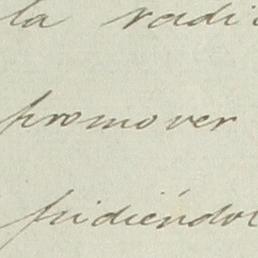 la radi
promover
pidiéndol